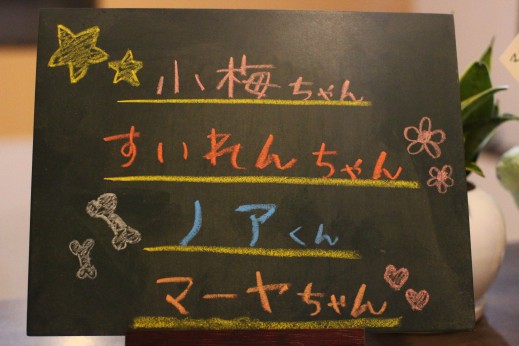 小梅ちゃん
すいれんちゃん
ノアくん
マーヤちゃん